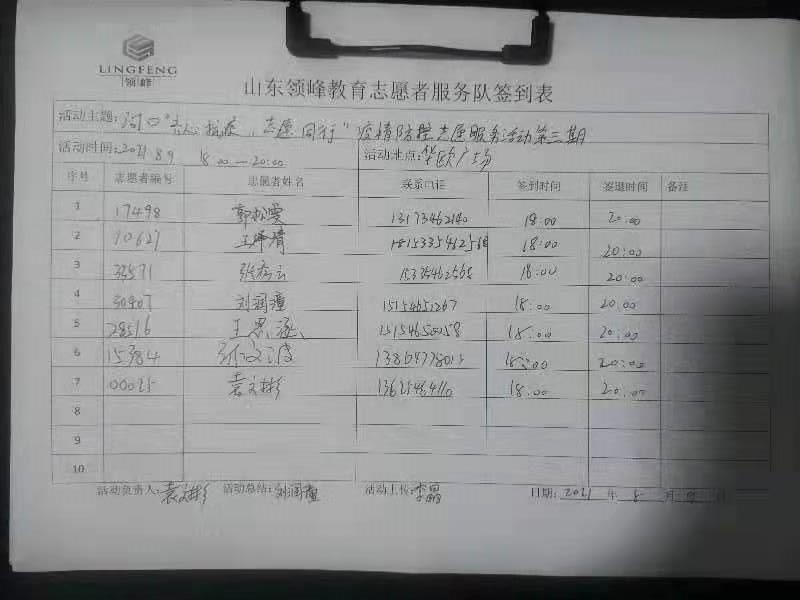 LINGFENG
领峰
山东领峰教育志愿者服务队签到表
活动主题: 河口"齐心抗疫,志愿同行"疫情防控志愿服务活动第三期
活动时间: 2021.8.9 18:00—20:00 活动地点: 华欧广场
序号 志愿者编号 志愿者姓名 联系电话 签到时间 签退时间 备注
1 17498 郭松雯 13173462140 18:00 20:00
2 10627 18:00 20:00
3 18:00 20:00
4 30907 刘润潼 15154651267 18:00 20:00
5 28516 王思涵 15154650058 18:00 20:00
6 15784 18:00 20:00
7 00025 袁文彬 18:00 20:00
8
9
10
活动负责人: 袁文彬 活动总结: 刘润潼 活动上传: 李晶 日期: 2021 年 8 月 9 日